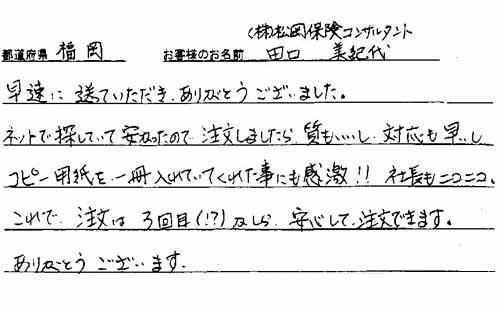 (株)松岡保険コンサルタント
都道府県 福岡 お客様のお名前 田口 美紀代
早速に送ていただき、ありがとうございました。
ネットで探していて安かったので注文しましたら、質もいいし、対応も早いし
コピー用紙を一冊入れていてくれた事にも感激!! 社長もニコニコ。
これで、注文は3回目(!?)なしら、安心して、注文できます。
ありがとうございます。